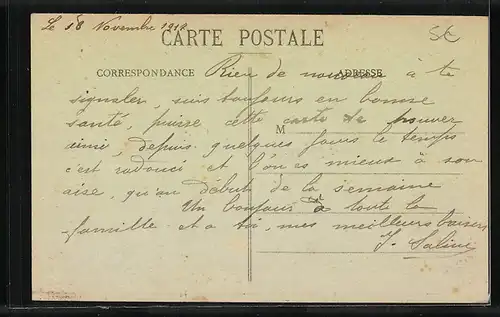 Le 18 Novembre 1919
CARTE POSTALE
CORRESPONDANCE
ADRESSE
Rien de nouveau à te
signaler, suis toujours en bonne
santé, puisse cette carte te trouver
M
ainsi, depuis quelques jours le temps
c'est radouci et l'on es mieux à son
aise, qu'au début de la semaine
Un bonjour à toute la
famille et a toi, mes meilleurs baisers